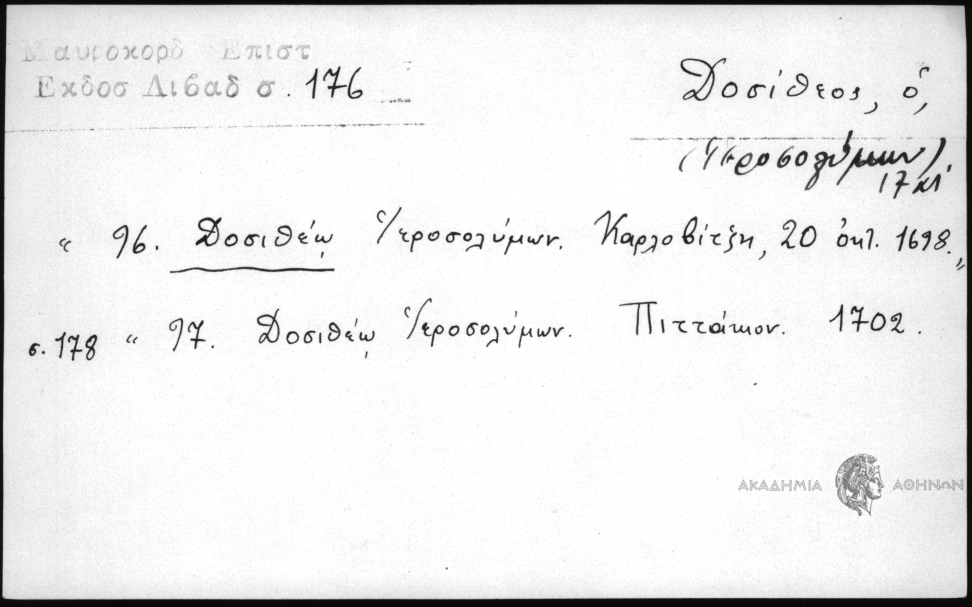 Μαυροκορδ Επιστ
Εκδοσ Λιβαδ σ. 176
Δοσίθεος, ὁ,
(Ἱεροσολύμων).
17 αἰ.
“ 96. Δοσιθέῳ Ἱεροσολύμων. Καρλοβίτζῃ, 20 ὀκτ. 1698.„
σ. 178 “ 97. Δοσιθέῳ Ἱεροσολύμων. Πιττάκιον. 1702.
ΑΚΑΔΗΜΙΑ ΑΘΗΝΩΝ